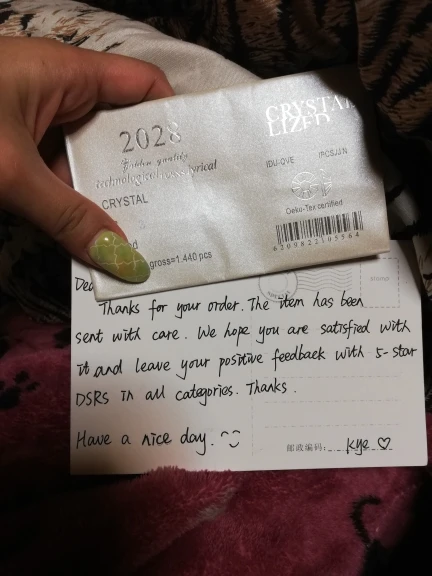 2028
CRYSTAL
LIZED
Golden quality
technological
IDU-OVE
CRYSTAL
Oeku-Tex certified
gross=1.440 pcs
6209822105964
Thanks for your order. The item has been
sent with care. We hope you are satisfied with
it and leave your positive feedback with 5-star
DSRs in all categories. Thanks.
Have a nice day.
邮政编码: Kye ♡